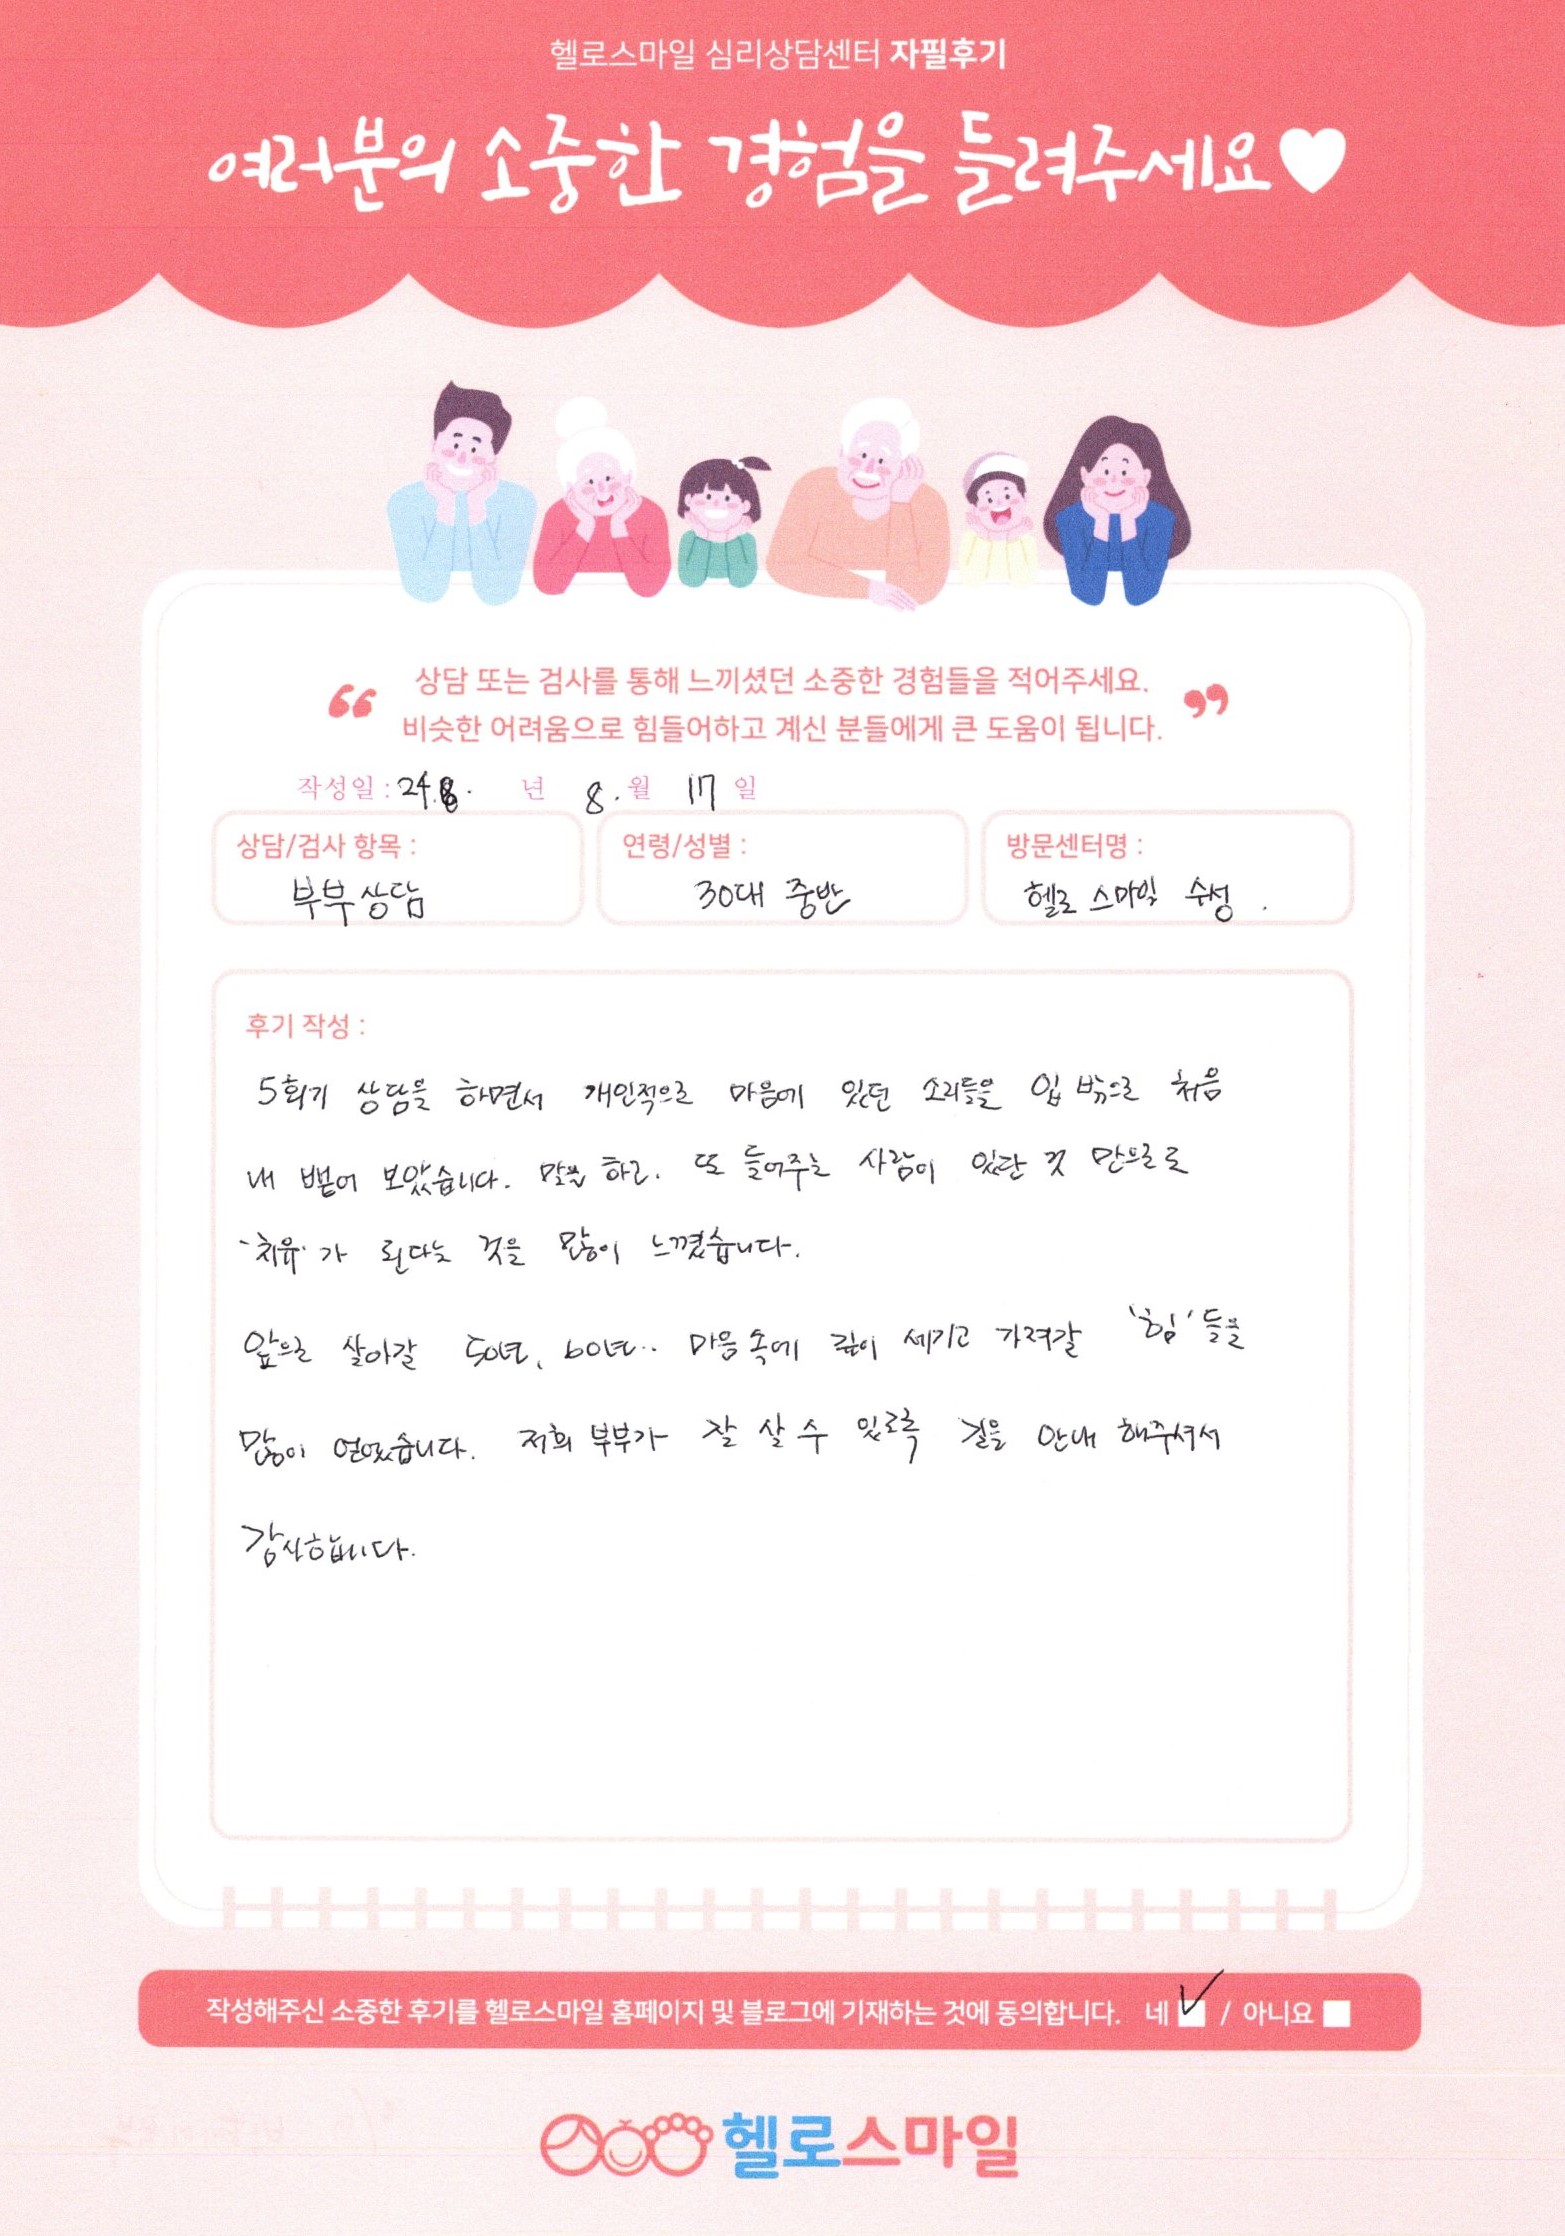 헬로스마일 심리상담센터 자필후기
여러분의 소중한 경험을 들려주세요
상담 또는 검사를 통해 느끼셨던 소중한 경험들을 적어주세요.
비슷한 어려움으로 힘들어하고 계신 분들에게 큰 도움이 됩니다.
작성일 : 24. 년 8. 월 17 일
상담/검사 항목 : 부부상담
연령/성별 : 30대 중반
방문센터명 : 헬로 스마일 수성 .
후기 작성 :
5회기 상담을 하면서 개인적으로 마음에 있던 소리들을 입 밖으로 처음
내 뱉어 보았습니다. 말을 하고, 또 들어주는 사람이 있단 것 만으로
'치유'가 된다는 것을 많이 느꼈습니다.
앞으로 살아갈 50년, 60년.. 마음속에 깊이 세기고 가져갈 '힘'들을
많이 얻었습니다. 저희 부부가 잘 살 수 있도록 길을 안내 해주셔서
감사합니다.
작성해주신 소중한 후기를 헬로스마일 홈페이지 및 블로그에 기재하는 것에 동의합니다. 네 ✓ / 아니요
헬로스마일